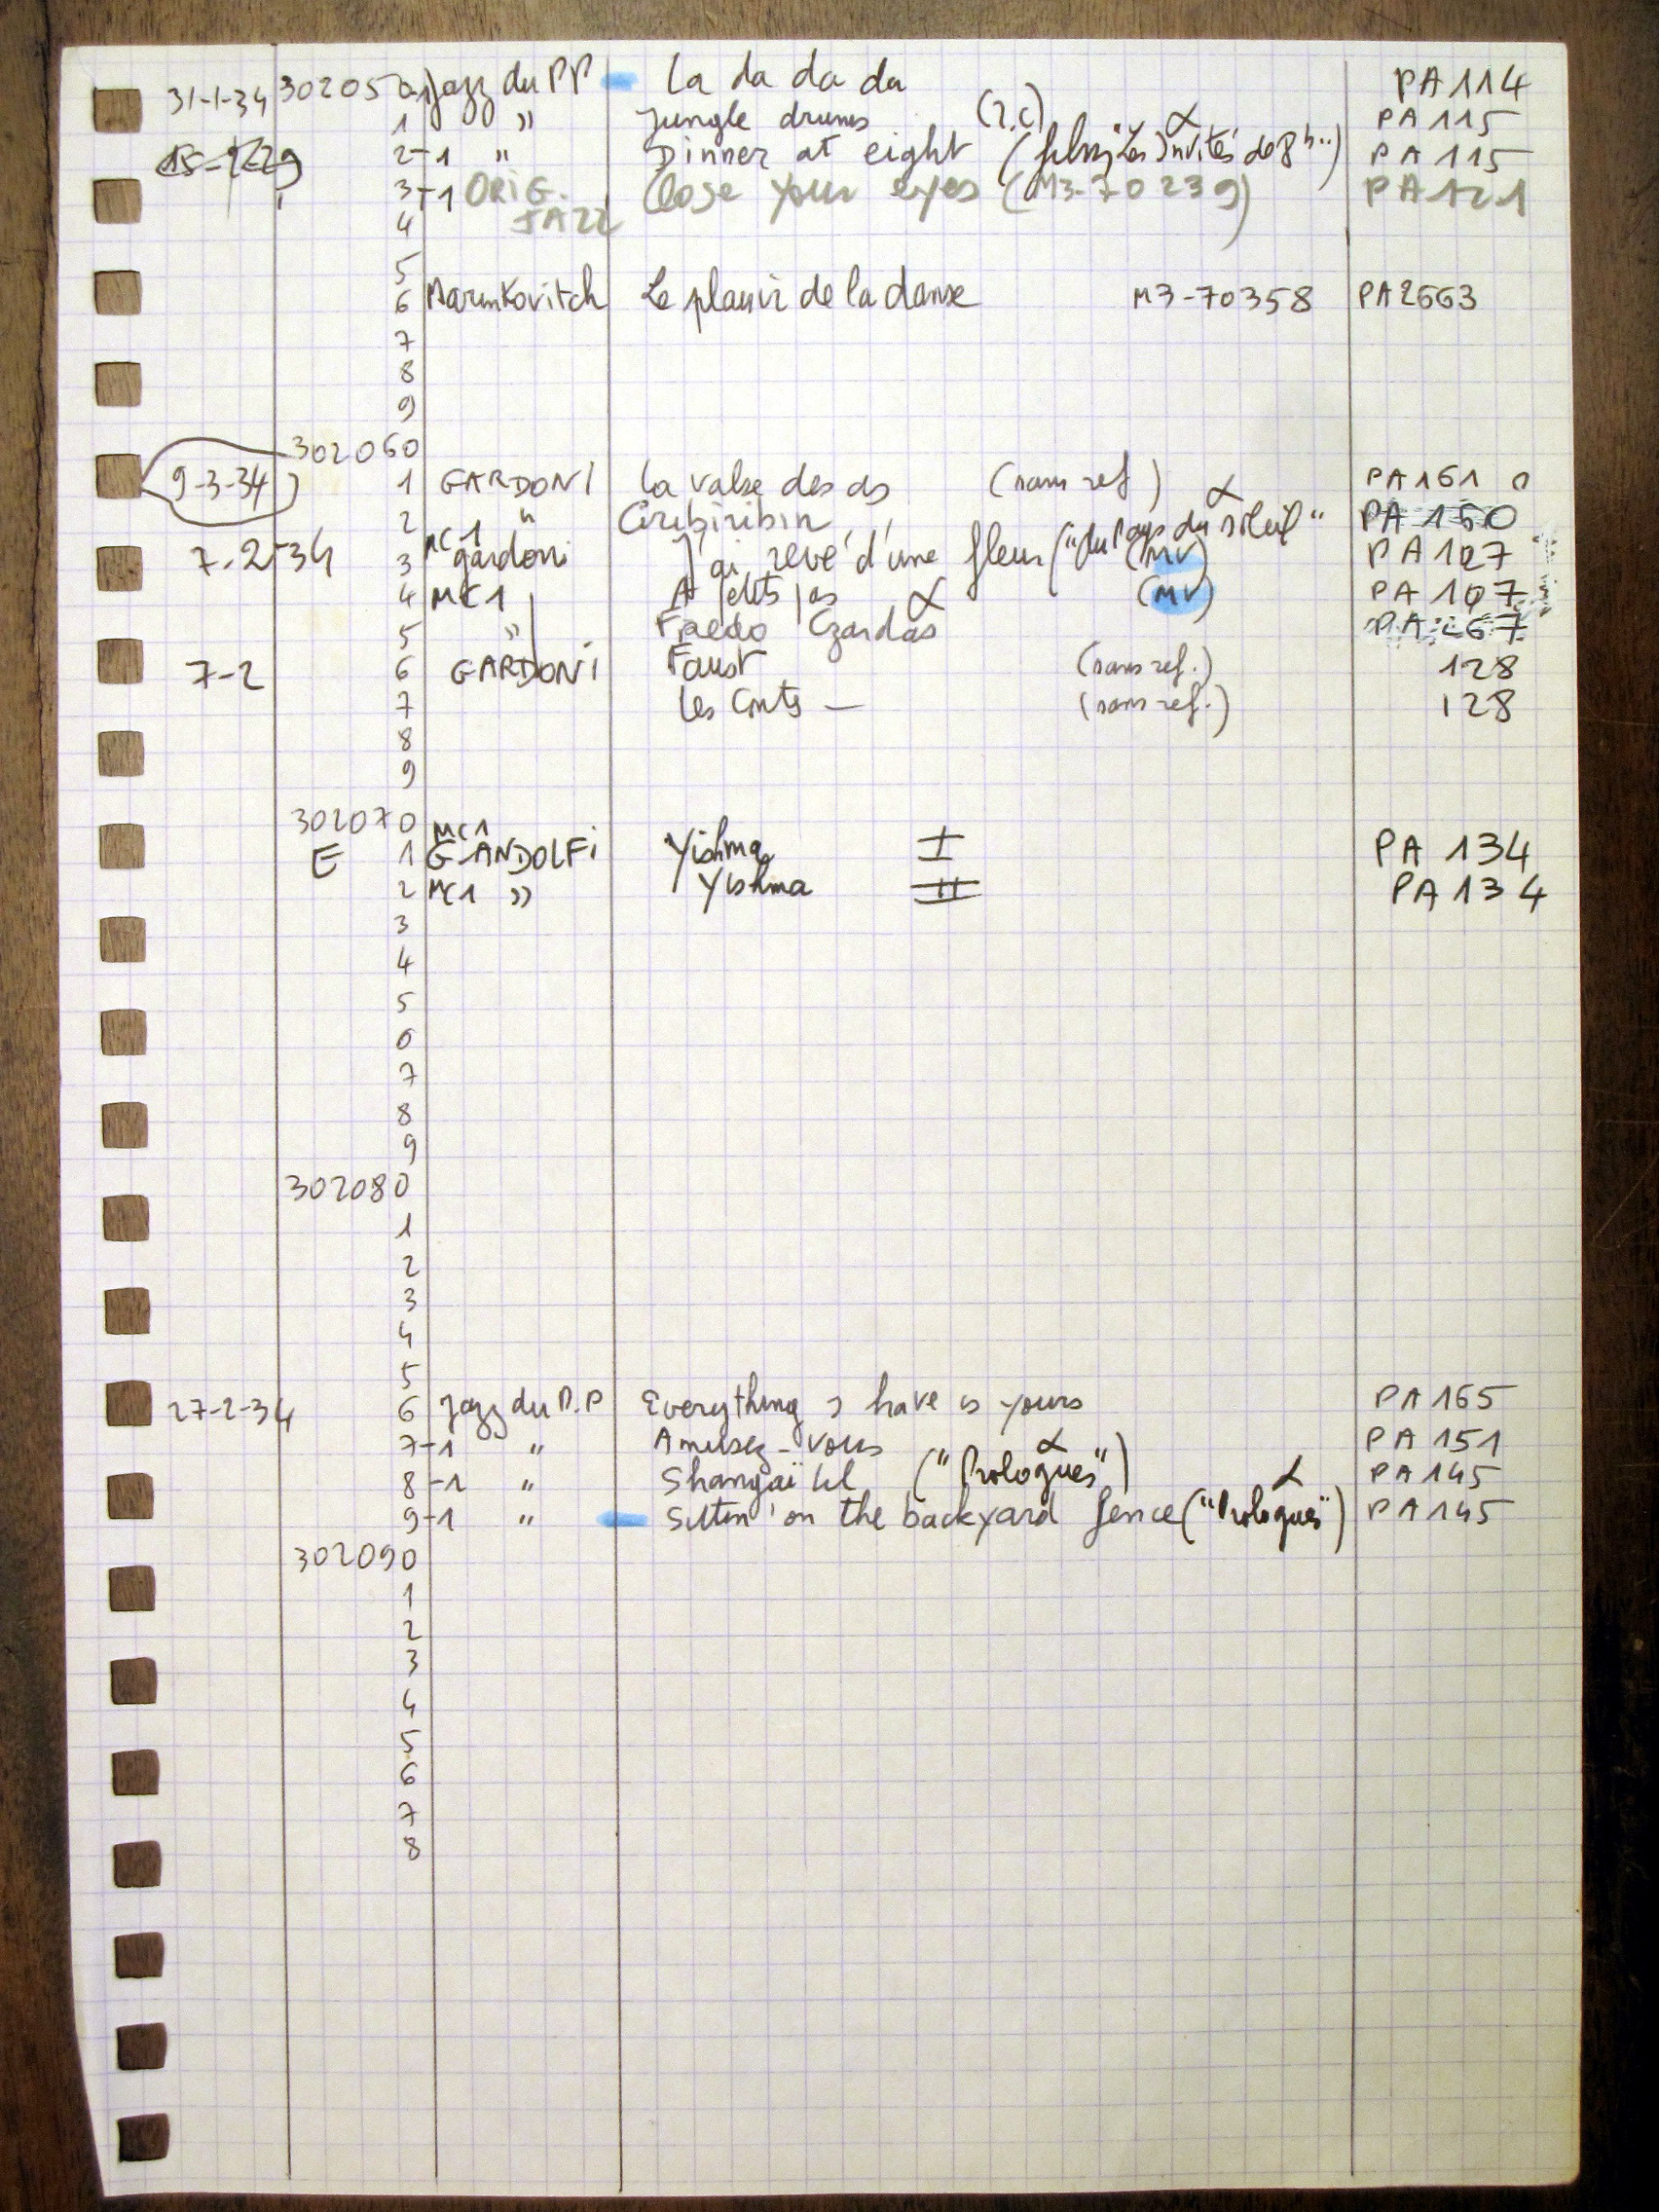 31-1-34 302050-1 Jazz du PP La da da da PA114
1 " Jungle drums (r.c) PA115
2-1 " Dinner at eight (film "Les Invités de 8h") PA115
3-1 ORIG. JAZZ Close your eyes (M3-70239) PA121
4
5
6 Marinkovitch Le plaisir de la danse M3-70358 PA2663
7
8
9
302060
9-3-34 1 GARDONI La valse des as (sans ref) PA161 0
2 " Ciribiribin PA 150
7-2-34 3 MC1 gardoni J'ai rêvé d'une fleur ("Au Pays du Soleil" (MV) PA 127
4 MC1 A petits pas (MV) PA 107
5 " Czardas
7-2 6 GARDONI Faust (sans ref.) 128
7 Les Conts — (sans ref.) 128
8
9
302070 MC1
E 1 GANDOLFI Yishma I PA 134
2 MC1 " Yishma II PA134
3
4
5
6
7
8
9
302080
1
2
3
4
5
27-2-34 6 Jazz du P.P Everything I have is yours PA165
7-1 " Amusez-vous PA 151
8-1 " Shangaï Lil ("Prologues") PA145
9-1 " Sittin' on the backyard fence ("Prologues") PA145
302090
1
2
3
4
5
6
7
8